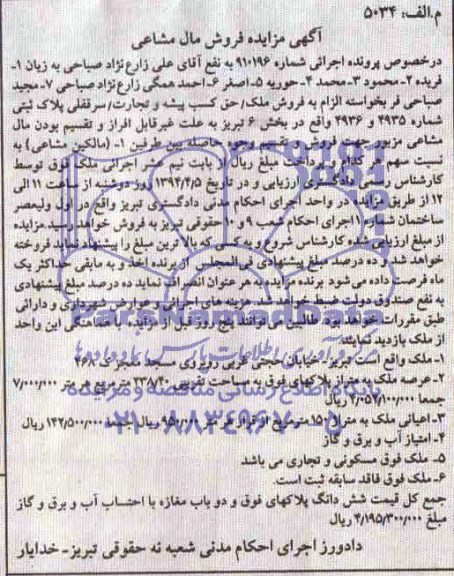 م.الف: ۵۰۳۴
آگهی مزایده فروش مال مشاعی
درخصوص پرونده اجرائی شماره ۹۱۰۱۹۶ به نفع آقای علی زارع نژاد صباحی به زیان ۱-
فریده ۲- محمود ۳- محمد ۴- حوریه ۵- اصغر ۶- احمد همگی زارع نژاد صباحی ۷- مجید
صباحی فر بخواسته الزام به فروش ملک/حق کسب پیشه و تجارت/سرقفلی پلاک ثبتی
شماره ۴۹۳۵ و ۴۹۳۶ واقع در بخش ۶ تبریز به علت غیرقابل افراز و تقسیم بودن مال
مشاعی مزبور جهت فروش و تقسیم وجوه حاصله بین طرفین ۱- (مالکین مشاعی) به
نسبت سهم هر کدام و پرداخت مبلغ ریال از بابت نیم عشر اجرائی ملک فوق توسط
کارشناس رسمی دادگستری ارزیابی و در تاریخ ۱۳۹۲/۴/۵ روز دوشنبه از ساعت ۱۱ الی
۱۲ از طریق مزایده در واحد اجرای احکام مدنی دادگستری تبریز واقع در اول ولیعصر
ساختمان شماره ۱ اجرای احکام شعب ۹ و ۱۰ حقوقی تبریز به فروش خواهد رسید مزایده
از مبلغ ارزیابی شده کارشناس شروع و به کسی که بالاترین مبلغ را پیشنهاد نماید فروخته
خواهد شد و ده درصد مبلغ پیشنهادی فی‌المجلس از برنده اخذ و به مابقی حداکثر یک
ماه فرصت داده می شود برنده مزایده به هر عنوان انصراف نماید ده درصد مبلغ پیشنهادی
به نفع صندوق دولت ضبط خواهد شد. هزینه های اجرائی و عوارض شهرداری و دارائی
طبق مقررات خواهد بود. طالبین می توانند پنج روز قبل از مزایده با هماهنگی این واحد
از ملک بازدید نمایند.
۱- ملک واقع است تبریز- خیابان حجتی غربی روبروی مسجد معجزک ۴۶۸
۲- عرصه ملک به متراژ پلاکهای فوق به مساحت تقریبی ۲۳۸/۴۰ مترمربع هر متر ۱۷/۰۰۰/۰۰۰
جمعا ۴/۰۵۲/۱۰۰/۰۰۰ ریال
۳- اعیانی ملک به متراژ ۱۵۰ مترمربع از قرار هر متر ۹۵۰/۰۰۰ ریال جمعا ۱۴۲/۵۰۰/۰۰۰ ریال
۴- امتیاز آب و برق و گاز
۵- ملک فوق مسکونی و تجاری می باشد
۶- ملک فوق فاقد سابقه ثبت است.
جمع کل قیمت شش دانگ پلاکهای فوق و دو باب مغازه با احتساب آب و برق و گاز
مبلغ ۴/۱۹۵/۳۰۰/۰۰۰ ریال
دادورز اجرای احکام مدنی شعبه نه حقوقی تبریز- خدایار
ParsNamadData
۰۲۱-۸۸۳۴۹۶۷۰-۵